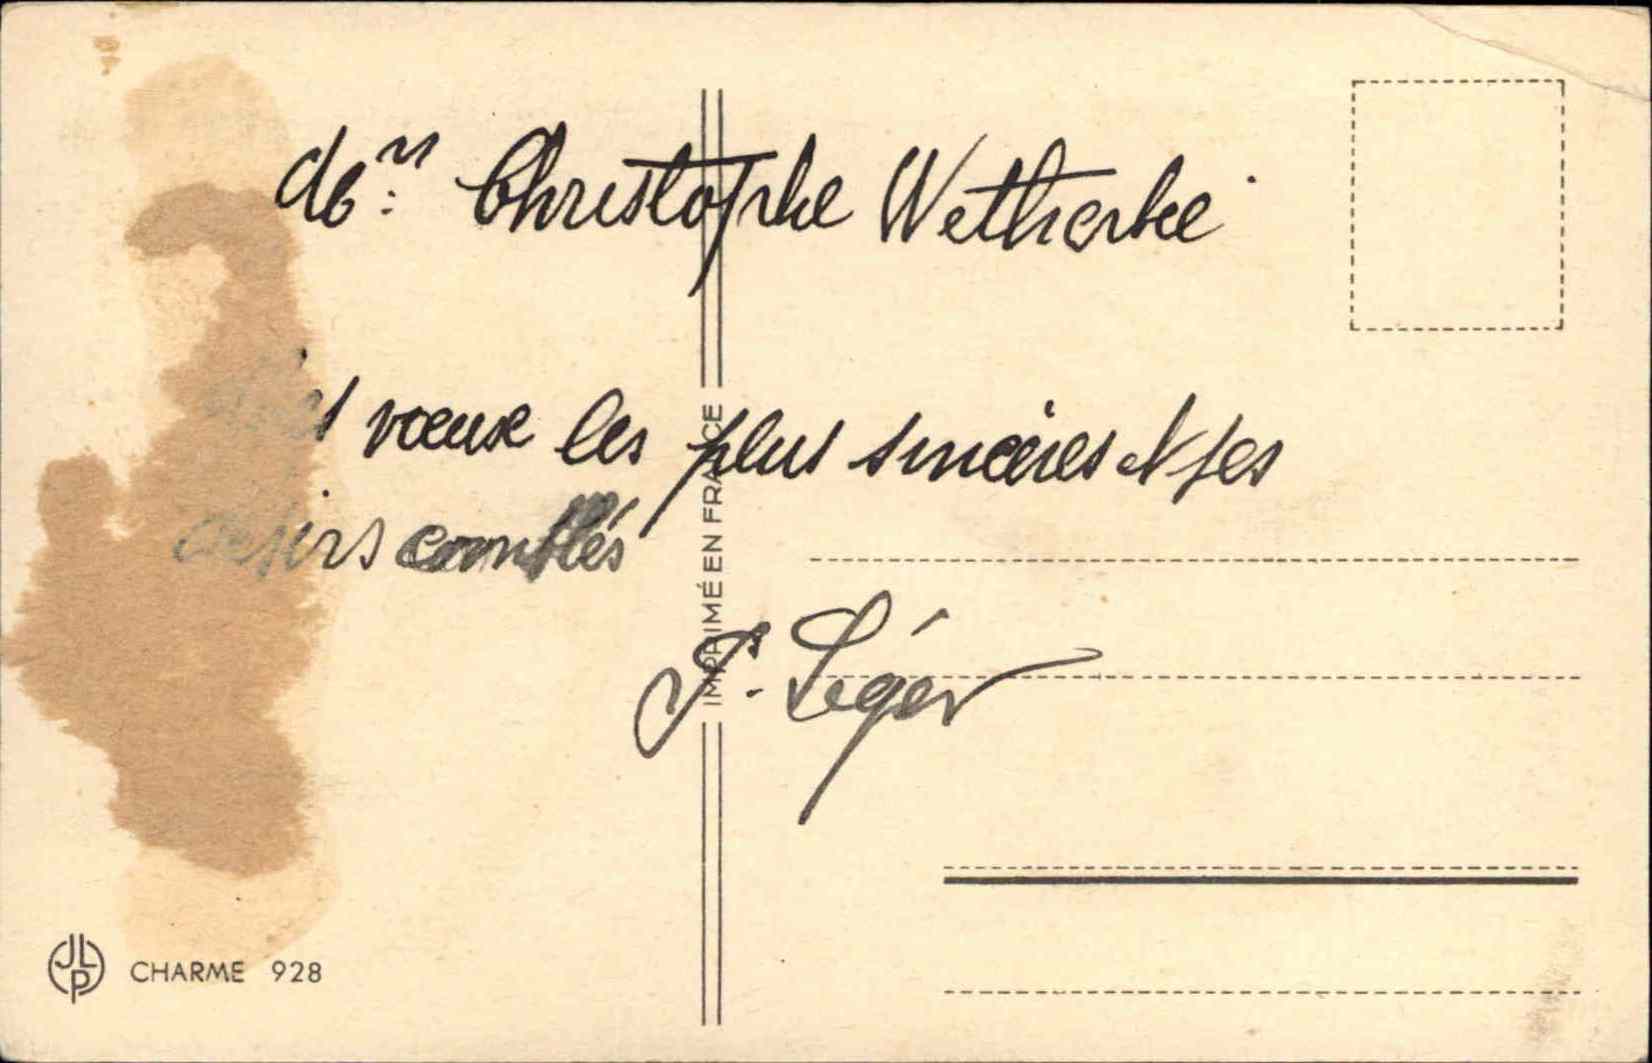 Christophe Wetherbé
vœux les plus sincères et ses
desirs comblés
Léger
IMPRIMÉ EN FRANCE
JLP
CHARME 928